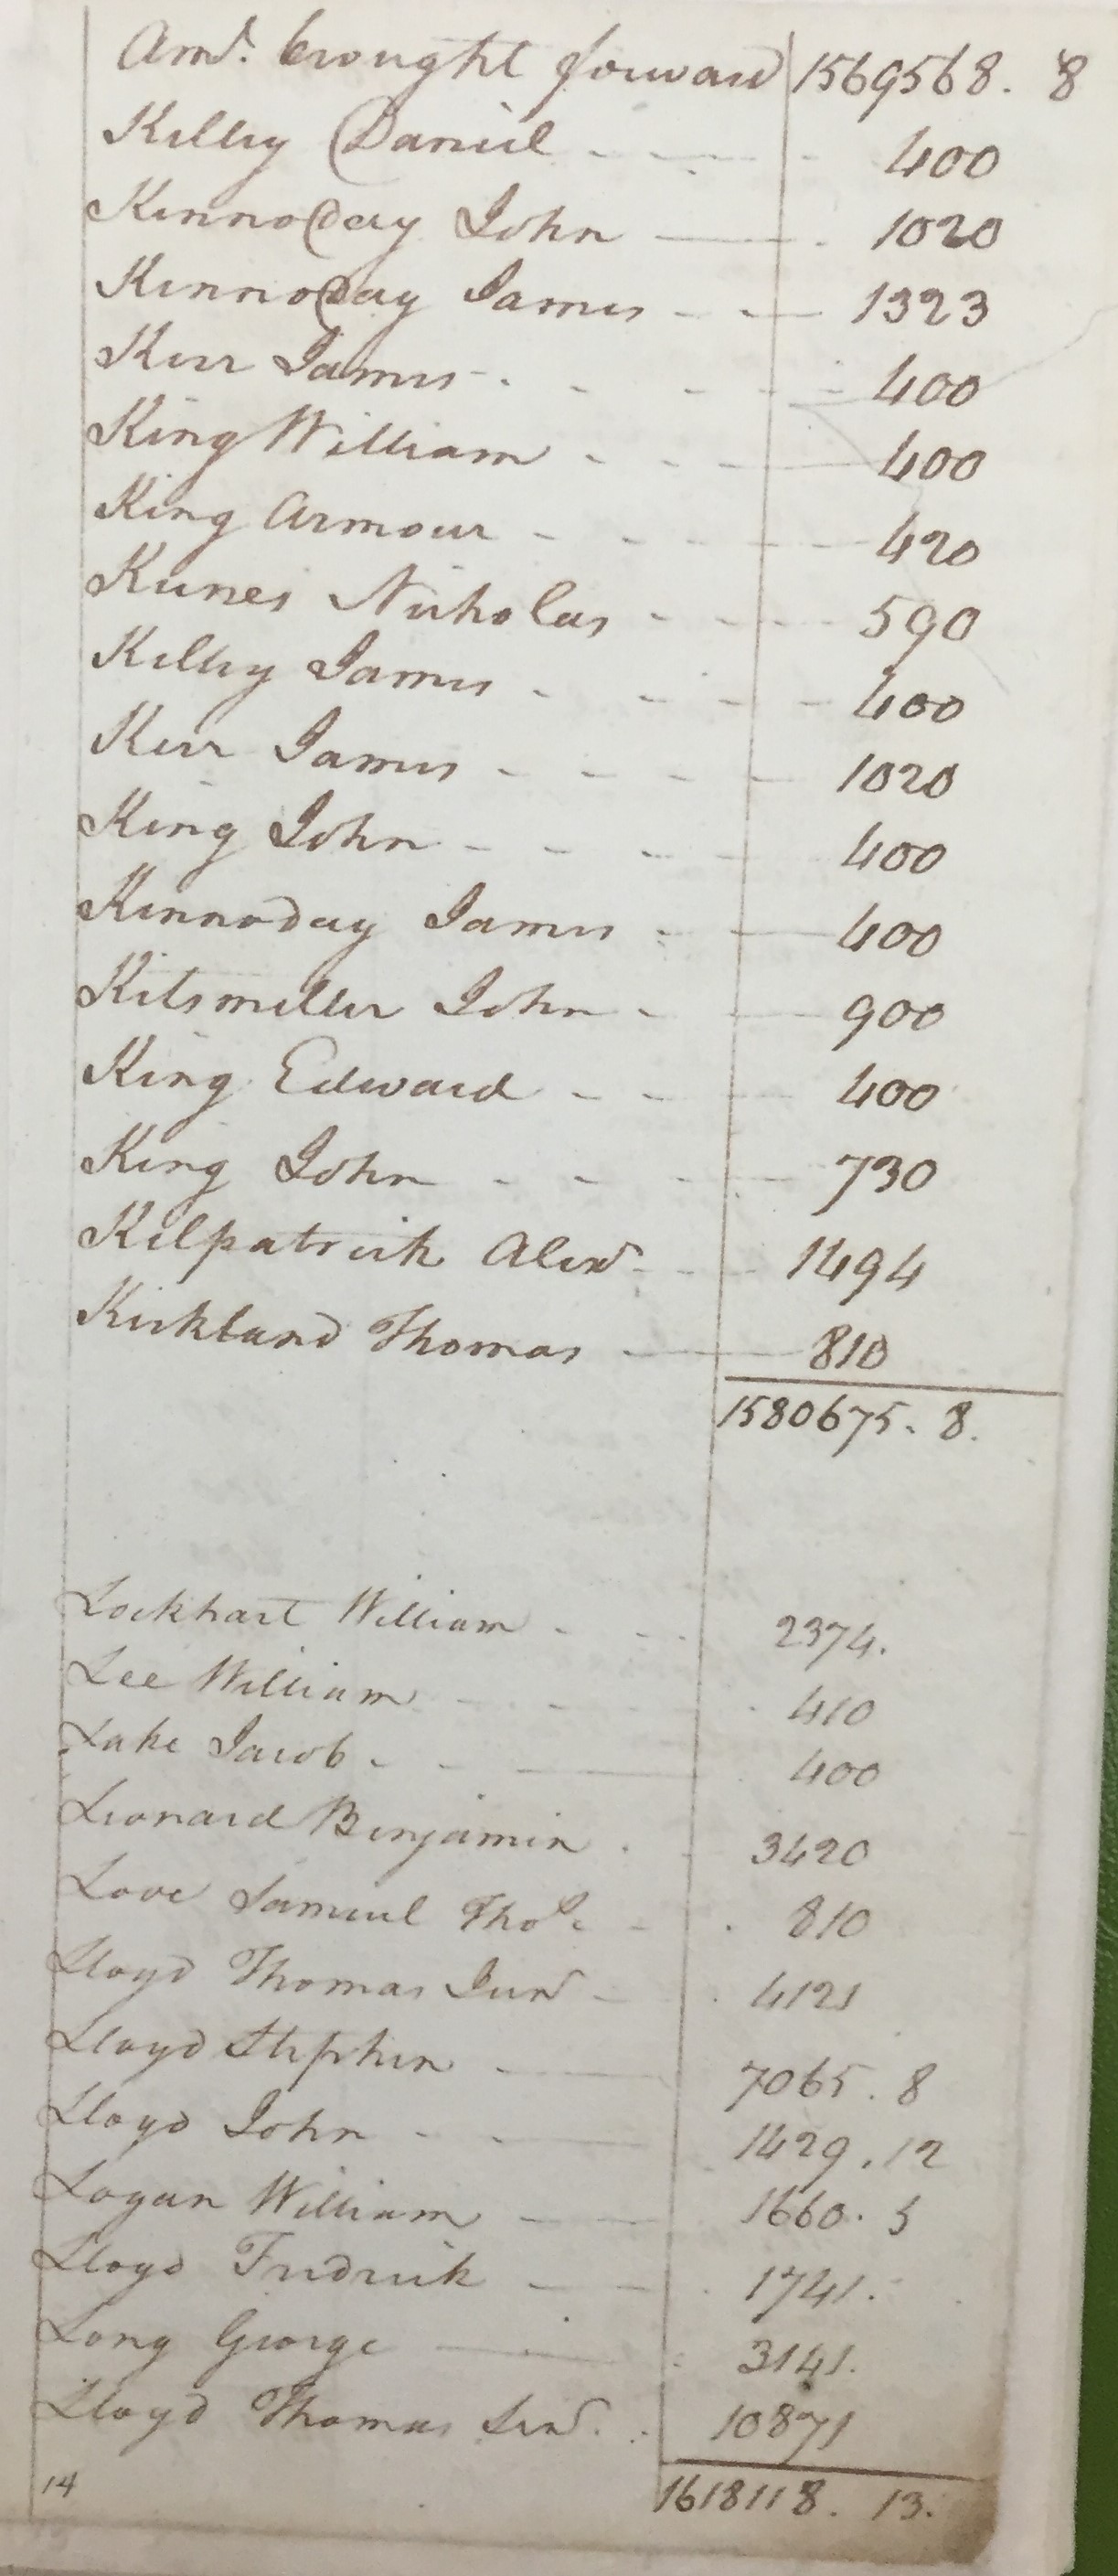 Amt. brought forward 1569568. 8
Kelley Daniel 400
Kennoday John 1020
Kennoday James 1323
Kerr James 400
King William 400
King Armour 420
Kunes Nicholas 590
Kelley James 400
Kerr James 1020
King John 400
Kennoday James 400
Kitsmiller John 900
King Edward 400
King John 730
Kilpatrick Alexr 1494
Kirkland Thomas 810
1580675. 8.
Lockhart William 2374.
Lee William 410
Lake Jacob 400
Leonard Benjamin 3420
Love Samuel Thos. 810
Lloyd Thomas Junr 4121
Lloyd Stephen 7065. 8
Lloyd John 1429. 12
Logan William 1660. 5
Lloyd Fredrick 1741.
Long George 3141.
Lloyd Thomas Senr. 10871
14 1618118. 13.